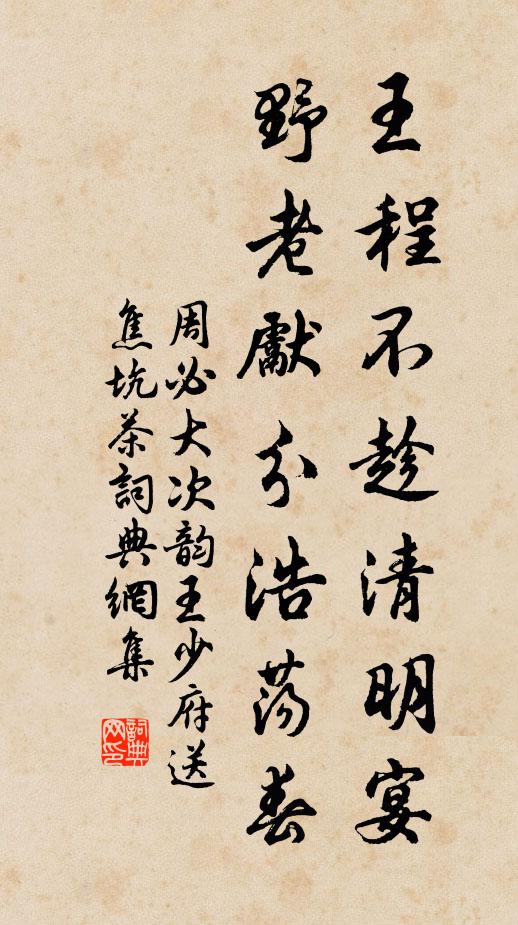 王程不趁清明宴
野老獻分浩荡春
周必大次韵王少府送
焦坑茶詞典網集
詞典网印